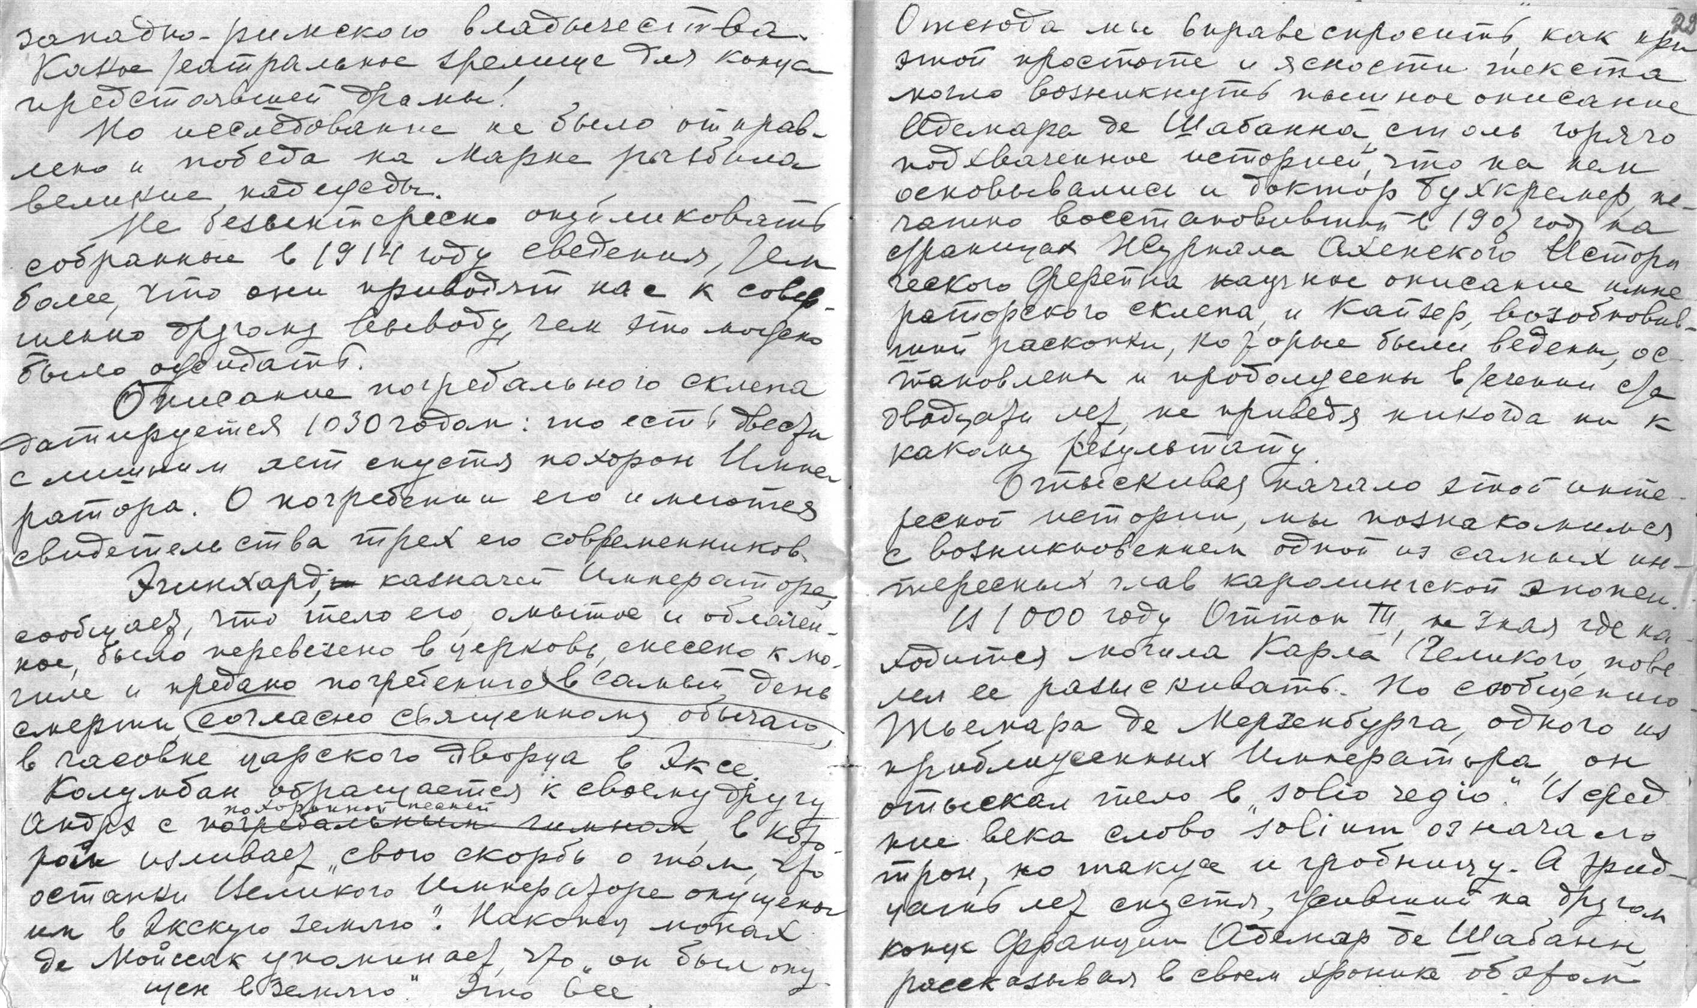 западно-римского владычества.
Какое театральное зрелище для конца
предстоявшей драмы!
Но исследование не было отправ-
лено и победа на Марне разбила
великие надежды.
Не безынтересно опубликовать
собранные в 1914 году сведения, тем
более, что они приводят нас к совер-
шенно другому выводу, чем это можно
было ожидать.
Описание погребального склепа
датируется 1030 годом: то есть двести
с лишним лет спустя похорон Импе
ратора. О погребении его имеются
свидетельства трех его современников.
Эгинхард, казначей Императора,
сообщает, что тело его, омытое и облачен-
ное, было перевезено в церковь, снесено к мо-
гиле и предано погребению в самый день
смерти, согласно священному обычаю,
в часовне царского дворца в Эксе.
Колумбан обращается к своему другу
похоронной песней
Андрх с погребальным гимном, в кото
рой изливает "свою скорбь о том, что
останки Великого Императора опущены
им в Экскую землю". Наконец монах
де Мойссак упоминает, что "он был опу
щен в землю". Это все
22
Отсюда мы вправе спросить, как при
этой простоте и ясности текста
могло возникнуть пышное описание
Адемара де Шабанна, столь горячо
подхваченное историей, что на нем
основывались и доктор Бухкремер, пе-
чатно восстановивший в 1907 году на
страницах Журнала Ахенского Истори
ческого Ферейна научное описание импе
раторского склепа, и Кайзер, возобновив-
ший раскопки, которые были ведены, ос-
тановлены и продолжены в течении ста
двадцати лет, не приведя никогда ни к
какому результату.
Отыскивая начало этой инте-
ресной истории, мы познакомимся
с возникновением одной из самых ин-
тересных глав каролингской эпопеи.
В 1000 году Оттон III, не зная где на-
ходится могила Карла Великого, пове
лел ее разыскивать. По сообщению
Тьемара де Мерзенбурга, одного из
приближенных Императора, он
отыскал тело в "solio regio". В сред
ние века слово "solium означало
трон, но также и гробницу. А трид-
цать лет спустя, живший на другом
конце Франции Адемар де Шабанн,
рассказывая в своей хронике об этом